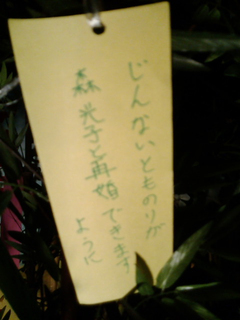 じんないとものりが
森光子と再婚できます
ように